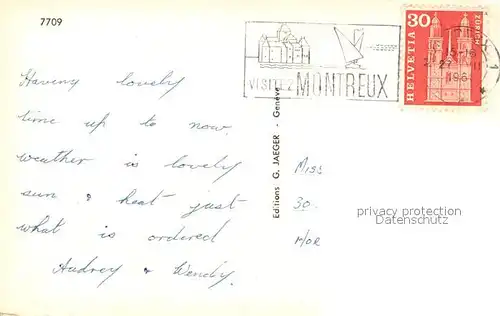 7709
VISITEZ MONTREUX
30
HELVETIA
ZÜRICH
196
1
Having lovely
time up to now.
weather is lovely
sun & heat just
what is ordered
Audrey & Wendy.
Editions G. JAEGER - Genève
MISS
30.
MOR
privacy protection
Datenschutz